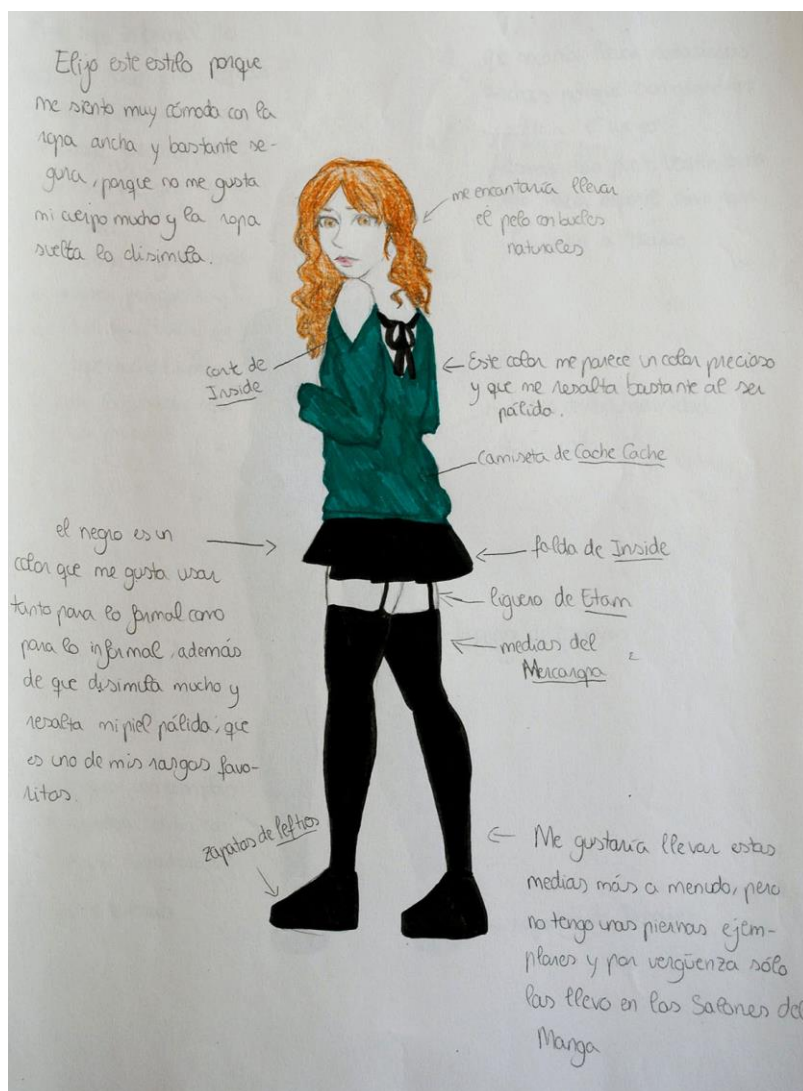 Elijo este estilo porque
me siento muy cómoda con la
ropa ancha y bastante se-
gura, porque no me gusta
mi cuerpo mucho y la ropa
suelta lo disimula.
me encantaría llevar
el pelo con bucles
naturales
corte de
Inside
Este color me parece un color precioso
y que me resalta bastante al ser
pálido.
camiseta de Cache Cache
el negro es un
color que me gusta usar
tanto para lo formal como
para lo informal, además
de que disimula mucho y
resalta mi piel pálida, que
es uno de mis rasgos favo-
ritos.
falda de Inside
liguero de Etam
medias del
Mercaropa
zapatos de lefties
Me gustaría llevar estas
medias más a menudo, pero
no tengo unas piernas ejem-
plares y por vergüenza sólo
las llevo en los Salones del
Manga